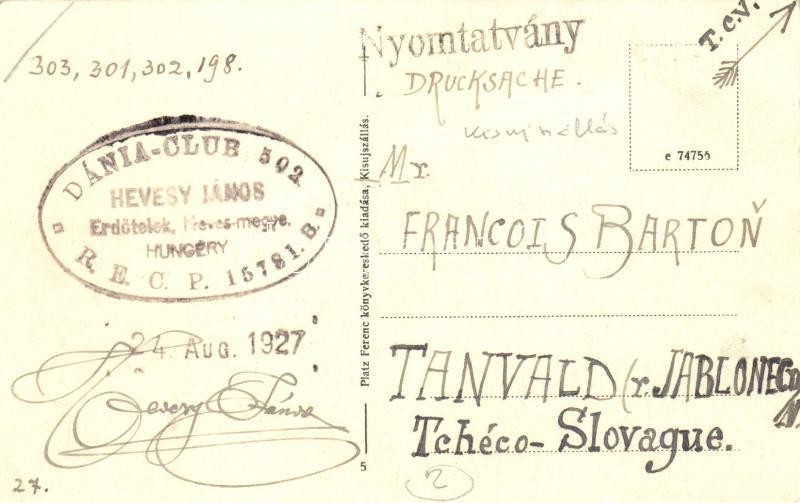 303, 301, 302, 198.
DÁNIA-CLUB 502
HEVESY JÁNOS
Erdőtelek, Heves-megye.
HUNGÉRY
R. E. C. P. 15781. B.
24. AUG. 1927
Hevesy János
27.
Platz Ferenc könyvkereskedő kiadása, Kisujszállás.
5
Nyomtatvány
DRUCKSACHE.
Kisujszállás
T.C.V.
e 74756
Mr.
FRANCOIS BARTOŇ
TANVALD (r. JABLONEC
Tchéco-Slovaque.
2